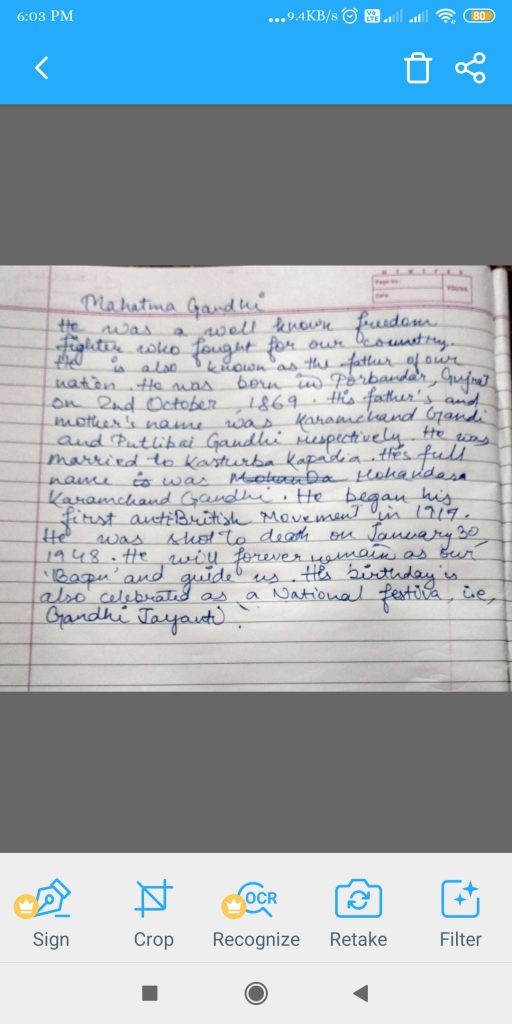 6:03 PM
...9.4KB/s Vo LTE 80
Page No.:
Date:
YOUVA
Mahatma Gandhi
He was a well known freedom
fighter who fought for our country.
He is also known as the father of our
nation. He was born in Porbandar, Gujrat
on 2nd October, 1869. His father's and
mother's name was Karamchand Gandi
and Putlibai Gandhi respectively. He was
married to Kasturba Kapadia. His full
name is was Mohanda Mohandasa
Karamchand Gandhi. He began his
first antiBritish Movement in 1917.
He was shot to death on January 30,
1948. He will forever remain as our
'Bapu' and guide us. His birthday is
also celebrated as a National festiva, i.e,
Gandhi Jayanti.
Sign
Crop
OCR
Recognize
Retake
Filter